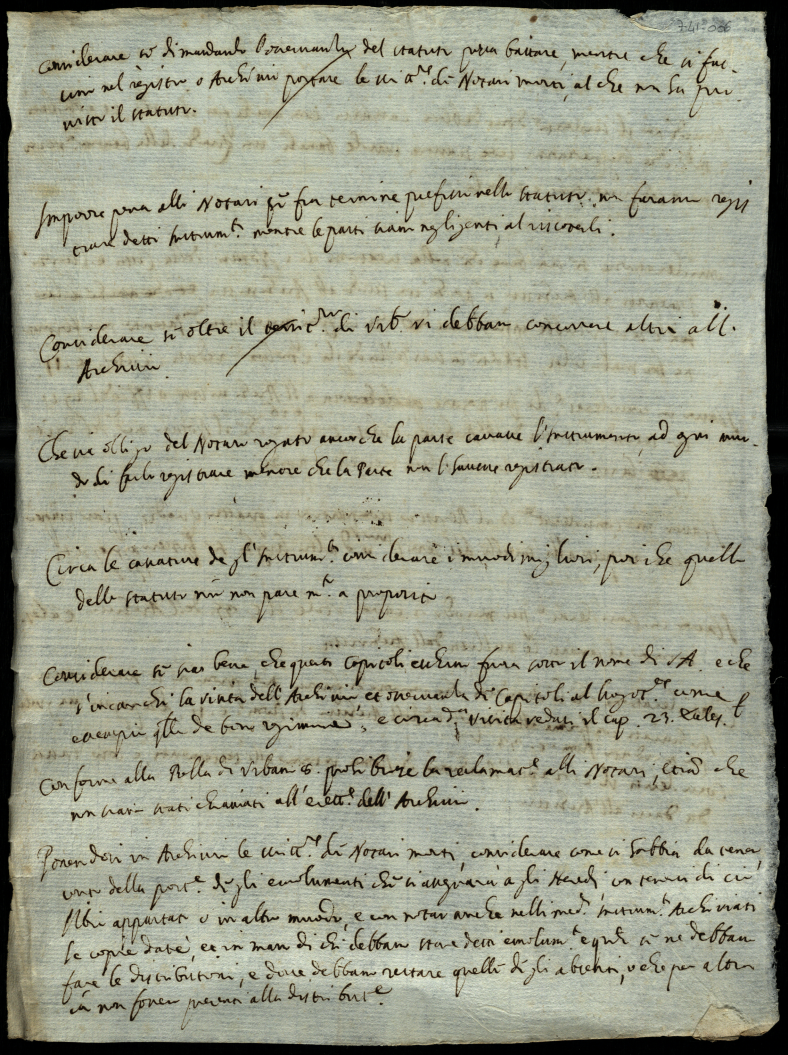 7-41-006
Considerare se dimandando l'osservanza del statuto possa bastare, mentre che si fac-
cino nel registro o Archivio portare le scritt.re de Notari morti, al che non ha pro-
visto il statuto.
Imporre pena alli Notari che fra termine prefisso nello statuto non faranno regis
trare detti Instrum.ti mentre le parti siano negligenti al riscoterli.
Considerare se oltre il territ.rio di Urb.o vi debbano concorrere altri all'
Archivio.
Che sia obligo del Notaro rogato ancorche la parte cavasse l'instrumento, ad ogni mo-
do di farlo registrare mentre che la Parte non l'havesse registrato.
Circa le cavature de gl'Instrum.ti considerare i modi migliori, poi che quello
dello statuto mio non pare m.to a proposito
Considerare se sia bene, che questi Capitoli eschino fuora sotto il nome di S.A. e che
s'incarichi la visita dell'Archivio et osservanza di Capitoli al luogot.te come
essempio q.lla de bono regimine, e circa d.a visita vedasi il cap. 23.
Conforme alla Bolla di Urbano 8. prohibire la reclamat.e alli Notari, etiam che
non siano stati chiamati all'erett.e dell'Archivio.
Ponendosi in Archivio le scritt.re de Notari morti, considerare come si habbia da tener
conto della port.e de gli emolumenti che si aspettarà a gli Heredi con tenersi di ciò
libri appartati o in altro modo, e con notar anche nelli med.i Instrum.ti Archiviati
le copie date, et in man di chi debbano stare detti emolum.ti e q.do se ne debbano
fare le distributioni, e dove debbano restare quelle de gli absenti, o che per altro
non fossero presenti alla distribut.e